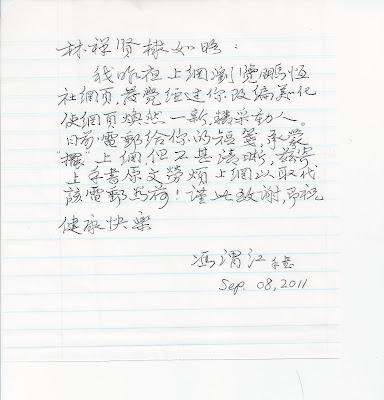 林祥贤棣如晤：
我昨夜上網瀏覽鵬恆
社網頁，發覺經过你改編美化
使網頁煥然一新，精采動人。
日前電郵給你的短箋，承蒙
"擺"上網但不甚清晰，茲寄
上手書原文勞煩上網以取代
該電郵為荷！謹此致謝，即祝
健康快樂
馮渭江
Sep. 08, 2011